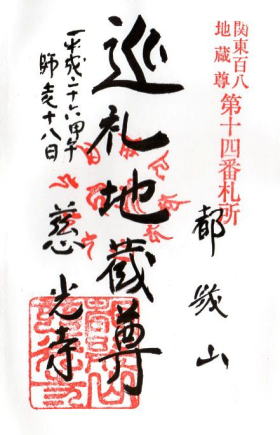 関東百八
地蔵尊
第十四番札所
都幾山
巡礼地蔵尊
慈光寺
平成二十六甲午
師走十八日